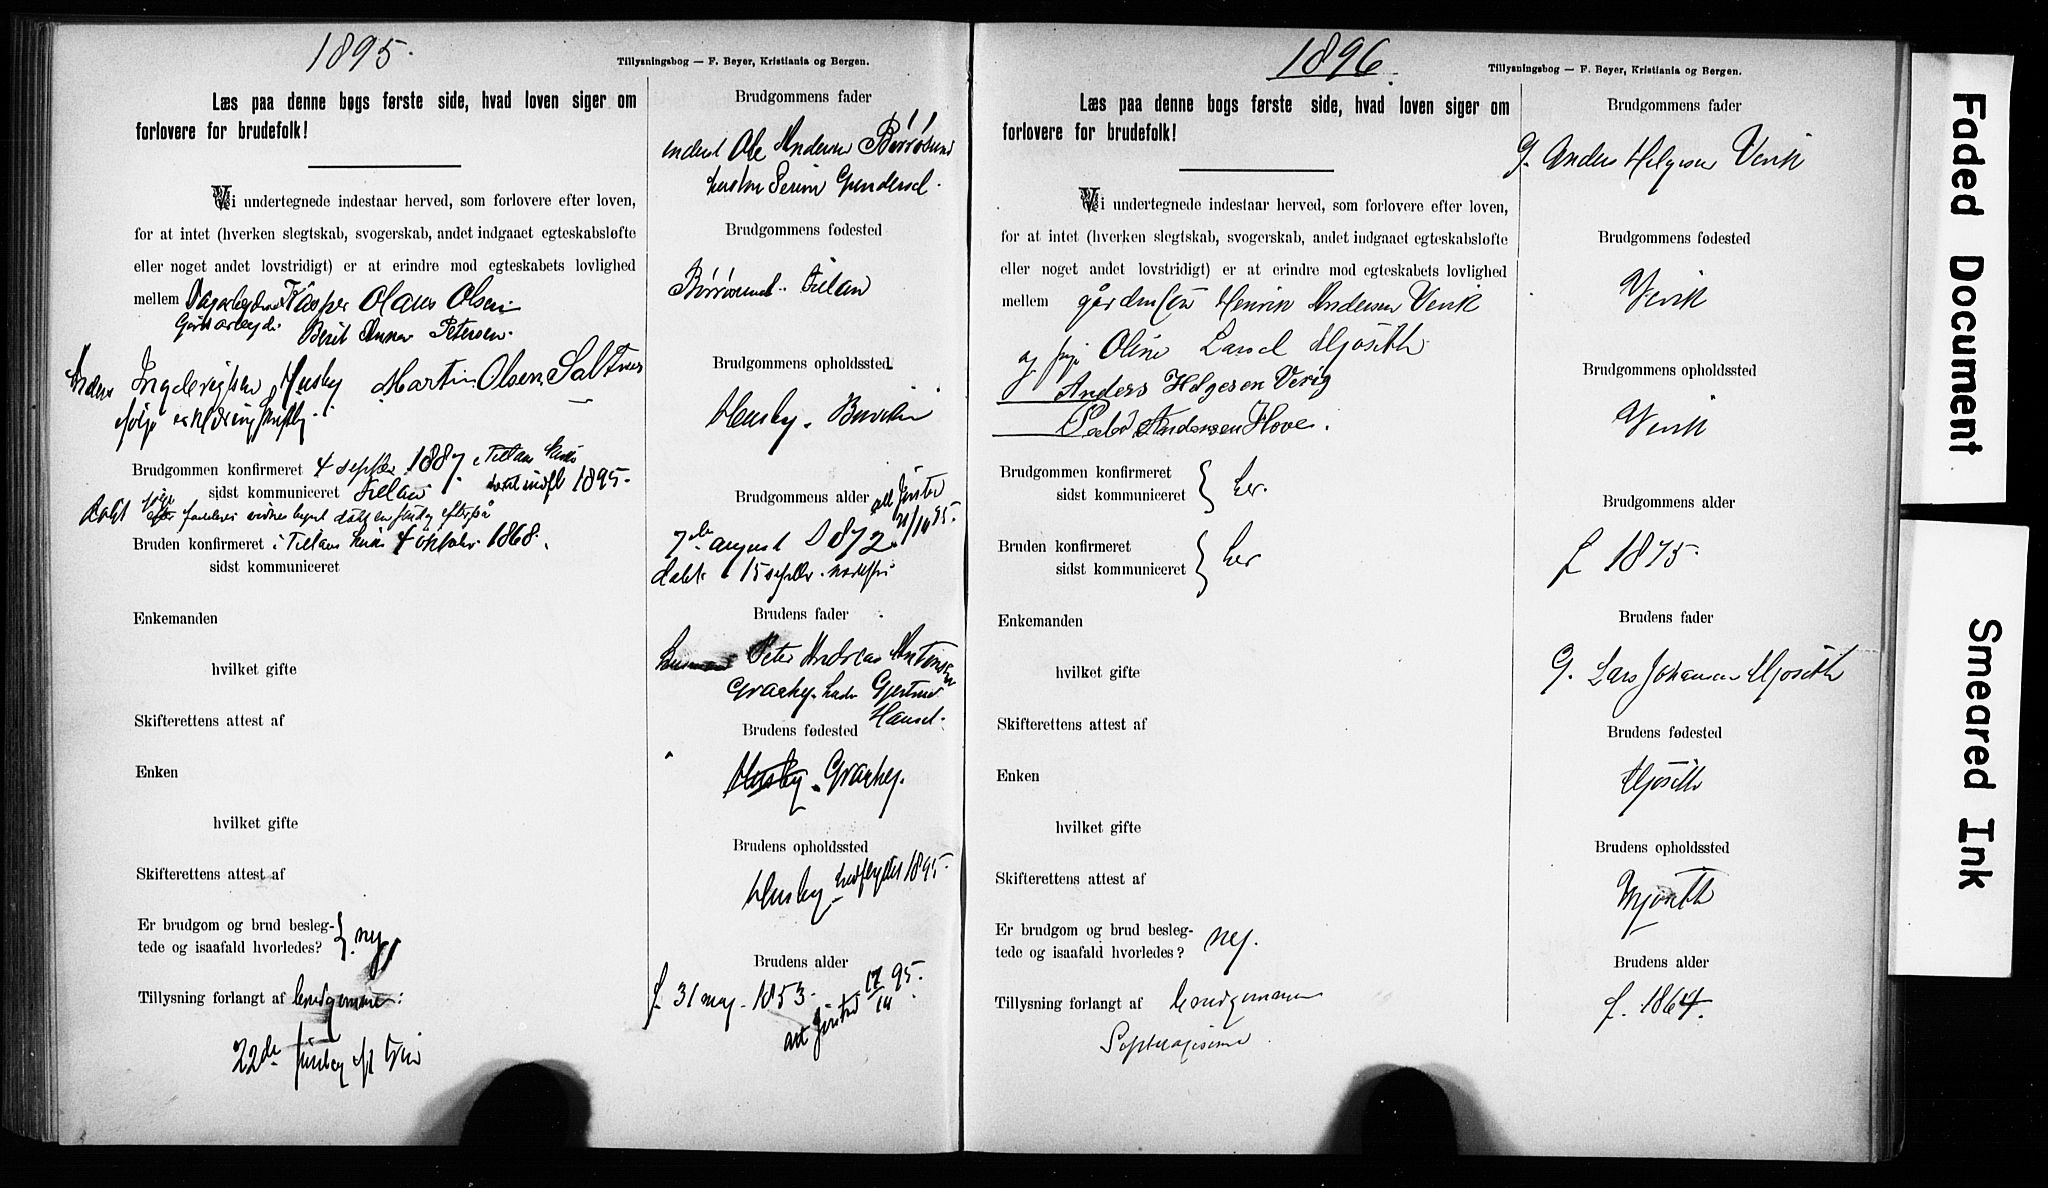 1895.
Tillysningsbog — F. Beyer, Kristiania og Bergen.
Læs paa denne bogs første side, hvad loven siger om
forlovere for brudefolk!
Vi undertegnede indestaar herved, som forlovere efter loven,
for at intet (hverken slegtskab, svogerskab, andet indgaaet egteskabsløfte
eller noget andet lovstridigt) er at erindre mod egteskabets lovlighed
mellem Kasper Olaus Olsen
Berit Anna Petersen.
Anders Ingebrigtsen Husby Martin Olsen Saltnes
Brudgommen konfirmeret 4 septbr. 1887 i
sidst kommuniceret 1895.
Bruden konfirmeret i 4 oktober 1868.
sidst kommuniceret
Enkemanden
hvilket gifte
Skifterettens attest af
Enken
hvilket gifte
Skifterettens attest af
Er brudgom og brud besleg-
tede og isaafald hvorledes? } nej
Tillysning forlangt af brudgommen.
22de
Brudgommens fader
Ole Andersen Børøsund
Brudgommens fødested
Børøsund
Brudgommens opholdssted
Husby. Buviken
Brudgommens alder
7de august 1872.
Brudens fader
Peter Andreas Antonsen
Hansd.
Brudens fødested
Husby.
Brudens opholdssted
Husby 1895.
Brudens alder
f. 31 maj 1853.
1896.
Tillysningsbog — F. Beyer, Kristiania og Bergen.
Læs paa denne bogs første side, hvad loven siger om
forlovere for brudefolk!
Vi undertegnede indestaar herved, som forlovere efter loven,
for at intet (hverken slegtskab, svogerskab, andet indgaaet egteskabsløfte
eller noget andet lovstridigt) er at erindre mod egteskabets lovlighed
mellem Henrik Andersen Verik
og pige Oline Larsd. Mjøseth
Anders Helgesen Verig
Peder Andersen Hove.
Brudgommen konfirmeret
sidst kommuniceret } her.
Bruden konfirmeret
sidst kommuniceret } her
Enkemanden
hvilket gifte
Skifterettens attest af
Enken
hvilket gifte
Skifterettens attest af
Er brudgom og brud besleg-
tede og isaafald hvorledes? nej.
Tillysning forlangt af brudgommen
Septuagesima
Brudgommens fader
G. Anders Helgesen Verik
Brudgommens fødested
Verik
Brudgommens opholdssted
Verik
Brudgommens alder
f. 1875.
Brudens fader
G. Lars Johansen Mjøseth
Brudens fødested
Mjøseth
Brudens opholdssted
Mjøseth
Brudens alder
f. 1864.
Faded Document
Smeared Ink